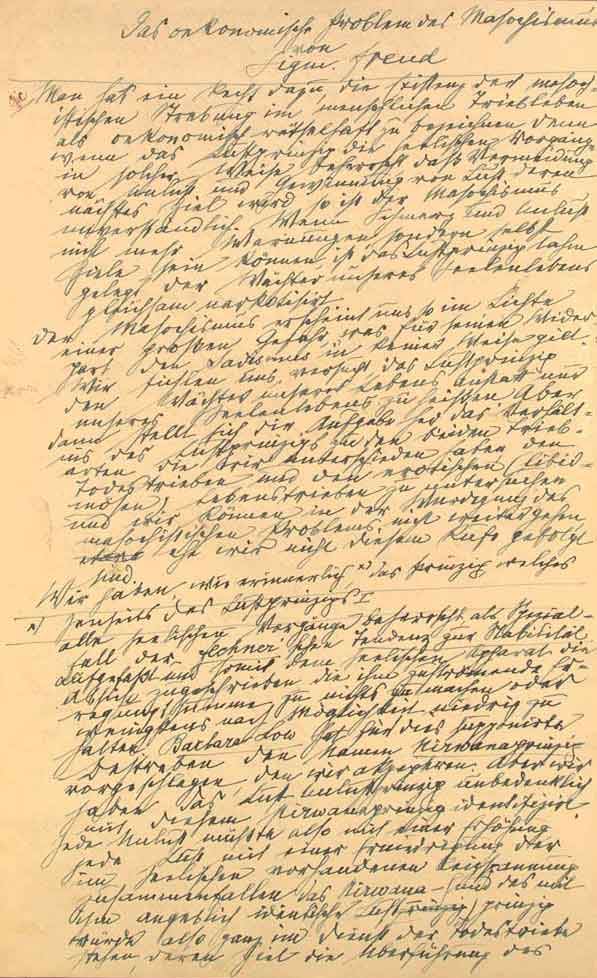 Das oekonomische Problem des Masochismus
von
Sigm. Freud
Man hat ein Recht dazu, die Existenz der masoch-
istischen Strebung im menschlichen Triebleben
als oekonomisch rätselhaft zu bezeichnen denn
wenn das Lustprinzip die seelischen Vorgänge
in solcher Weise beherrscht daß Vermeidung
von Unlust und Gewinnung von Lust deren
nächstes Ziel wird so ist der Masochismus
unverständlich. Wenn Schmerz und Unlust
nicht mehr Warnungen sondern selbst
Ziele sein können ist das Lustprinzip lahm
gelegt der Wächter unseres Seelenlebens
gleichsam narkotisirt.
Der Masochismus erscheint uns so im Lichte
einer großen Gefahr was für seinen Wider-
part den Sadismus in keiner Weise gilt.
Wir fühlen uns versucht das Lustprinzip
den Wächter unseres Lebens anstatt nur
unseres Seelenlebens zu heißen Aber
dann stellt sich die Aufgabe her das Verhält-
nis des Lustprinzips zu den beiden Trieb-
arten die wir unterschieden haben den
Todestrieben und den erotischen (libidi-
nösen) Lebenstrieben zu untersuchen
und wir können in der Würdigung des
masochistischen Problems nicht weiter gehen
ehe wir nicht diesem Rufe gefolgt
sind.
Wir haben, wie erinnerlich, x) das Prinzip welches
x) Jenseits des Lustprinzips I
alle seelischen Vorgänge beherrscht als Spezial-
fall der Fechner'schen Tendenz zur Stabilität
aufgefaßt und somit dem seelischen Apparat die
Absicht zugeschrieben die ihm zuströmende Er-
regungssumme zu nichts zu machen oder
wenigstens nach Möglichkeit niedrig zu
halten. Barbara Low hat für dies supponirte
Bestreben den Namen Nirwanaprinzip
vorgeschlagen, den wir akzeptiren. Aber wir
haben das Lust Unlustprinzip unbedenklich
mit diesem Nirwanaprinzip identifizirt.
Jede Unlust müßte also mit einer Erhöhung
jede Lust mit einer Erniedrigung der
im Seelischen vorhandenen Reizspannung
zusammenfallen das Nirwana- (und das mit
ihm angeblich identische Lust)prinzip
würde also ganz im Dienst der Todestriebe
stehen, deren Ziel die Überführung des